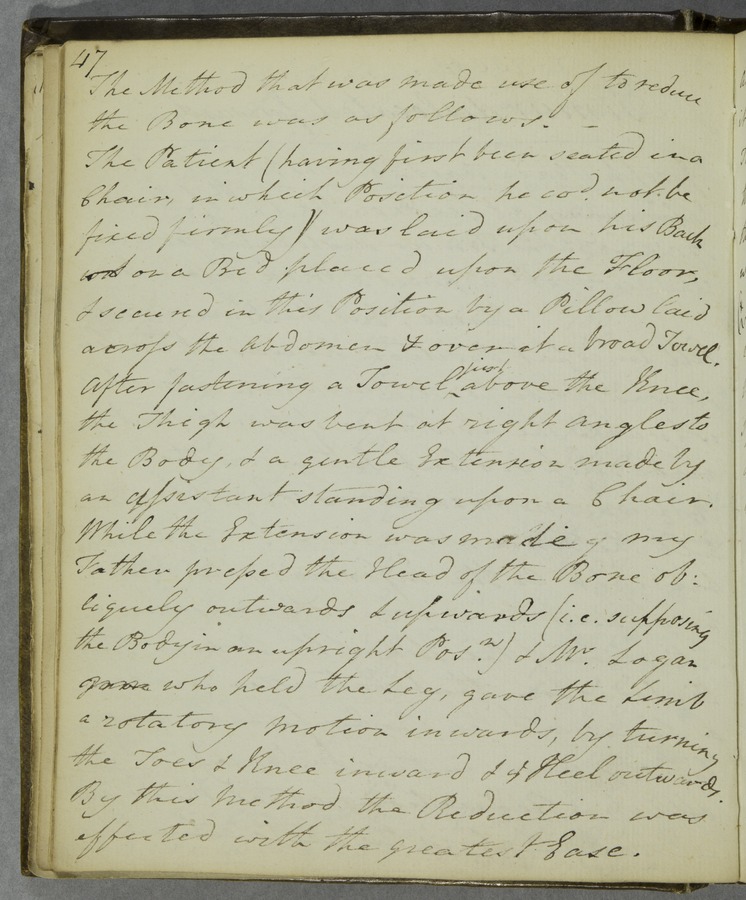 47
The Method that was made use of to reduce
the Bone was as follows. —
The Patient (having first been seated in a
Chair, in which Position he cod. not be
fixed firmly) was laid upon his Back
on a Bed placed upon the Floor,
& secured in this Position by a Pillow laid
across the Abdomen & over it a broad Towel.
After fastening a Towel just above the Knee,
the Thigh was bent at right angles to
the Body, & a gentle Extension made by
an assistant standing upon a Chair.
While the Extension was made my
Father pressed the Head of the Bone ob:
liquely outwards & upwards (i.e. supposing
the Body in an upright Posn.) & Mr. Logan
who held the Leg, gave the Limb
a rotatory motion inwards, by turning
the Toes & Knee inward & ye Heel outwards.
By this Method the Reduction was
effected with the greatest Ease.